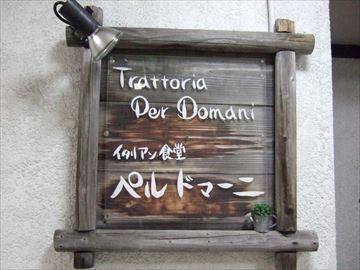 Trattoria
Per Domani
イタリアン食堂
ペルドマーニ